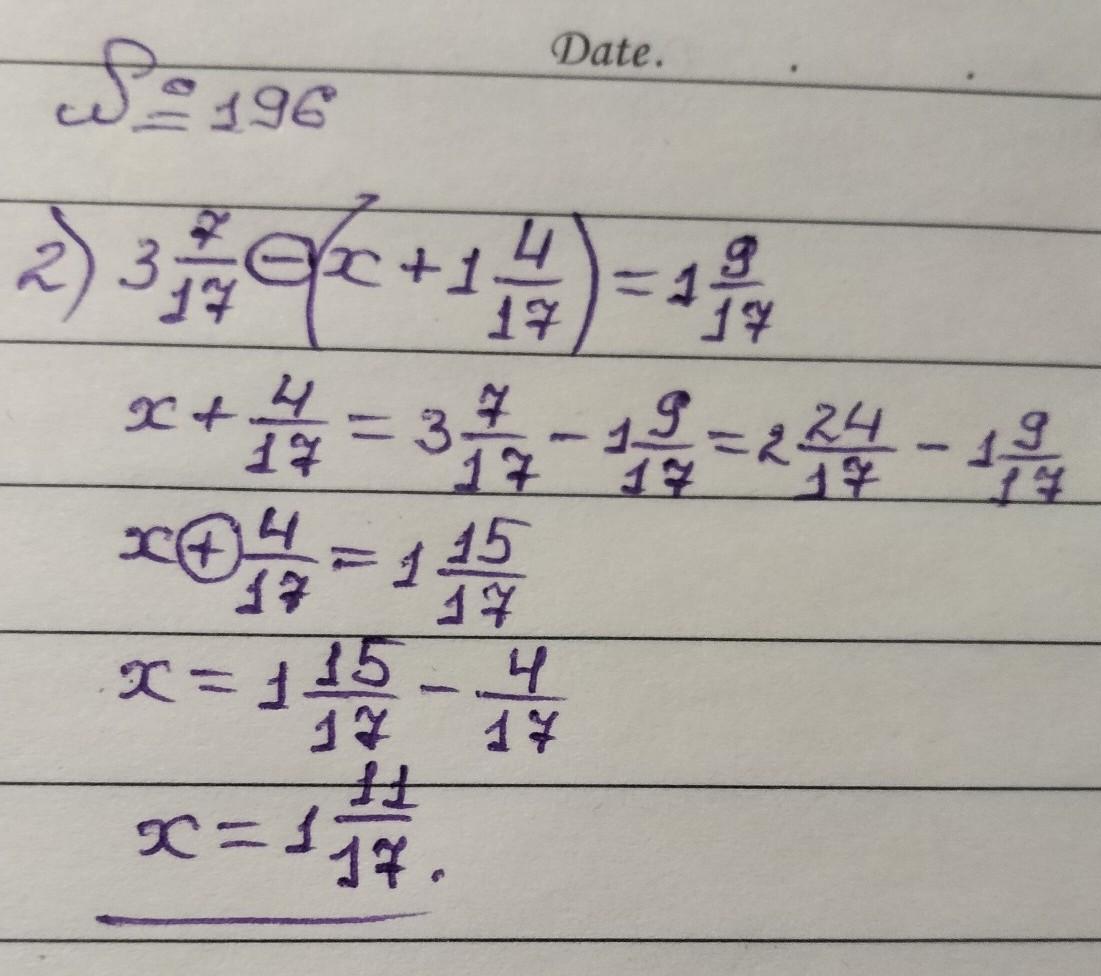 Date. . .
№ 196
2) 3 7/17 - (x + 1 4/17) = 1 9/17
x + 4/17 = 3 7/17 - 1 9/17 = 2 24/17 - 1 9/17
x + 4/17 = 1 15/17
x = 1 15/17 - 4/17
x = 1 11/17.